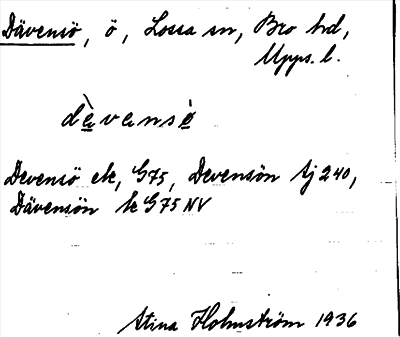 Dävensö, ö, Lossa sn, Bro hd,
Upps. l.
dè̱vensè̱
Devensö ek, G75, Devensön Aj 240,
Dävensön tk G75 NV
Stina Holmström 1936